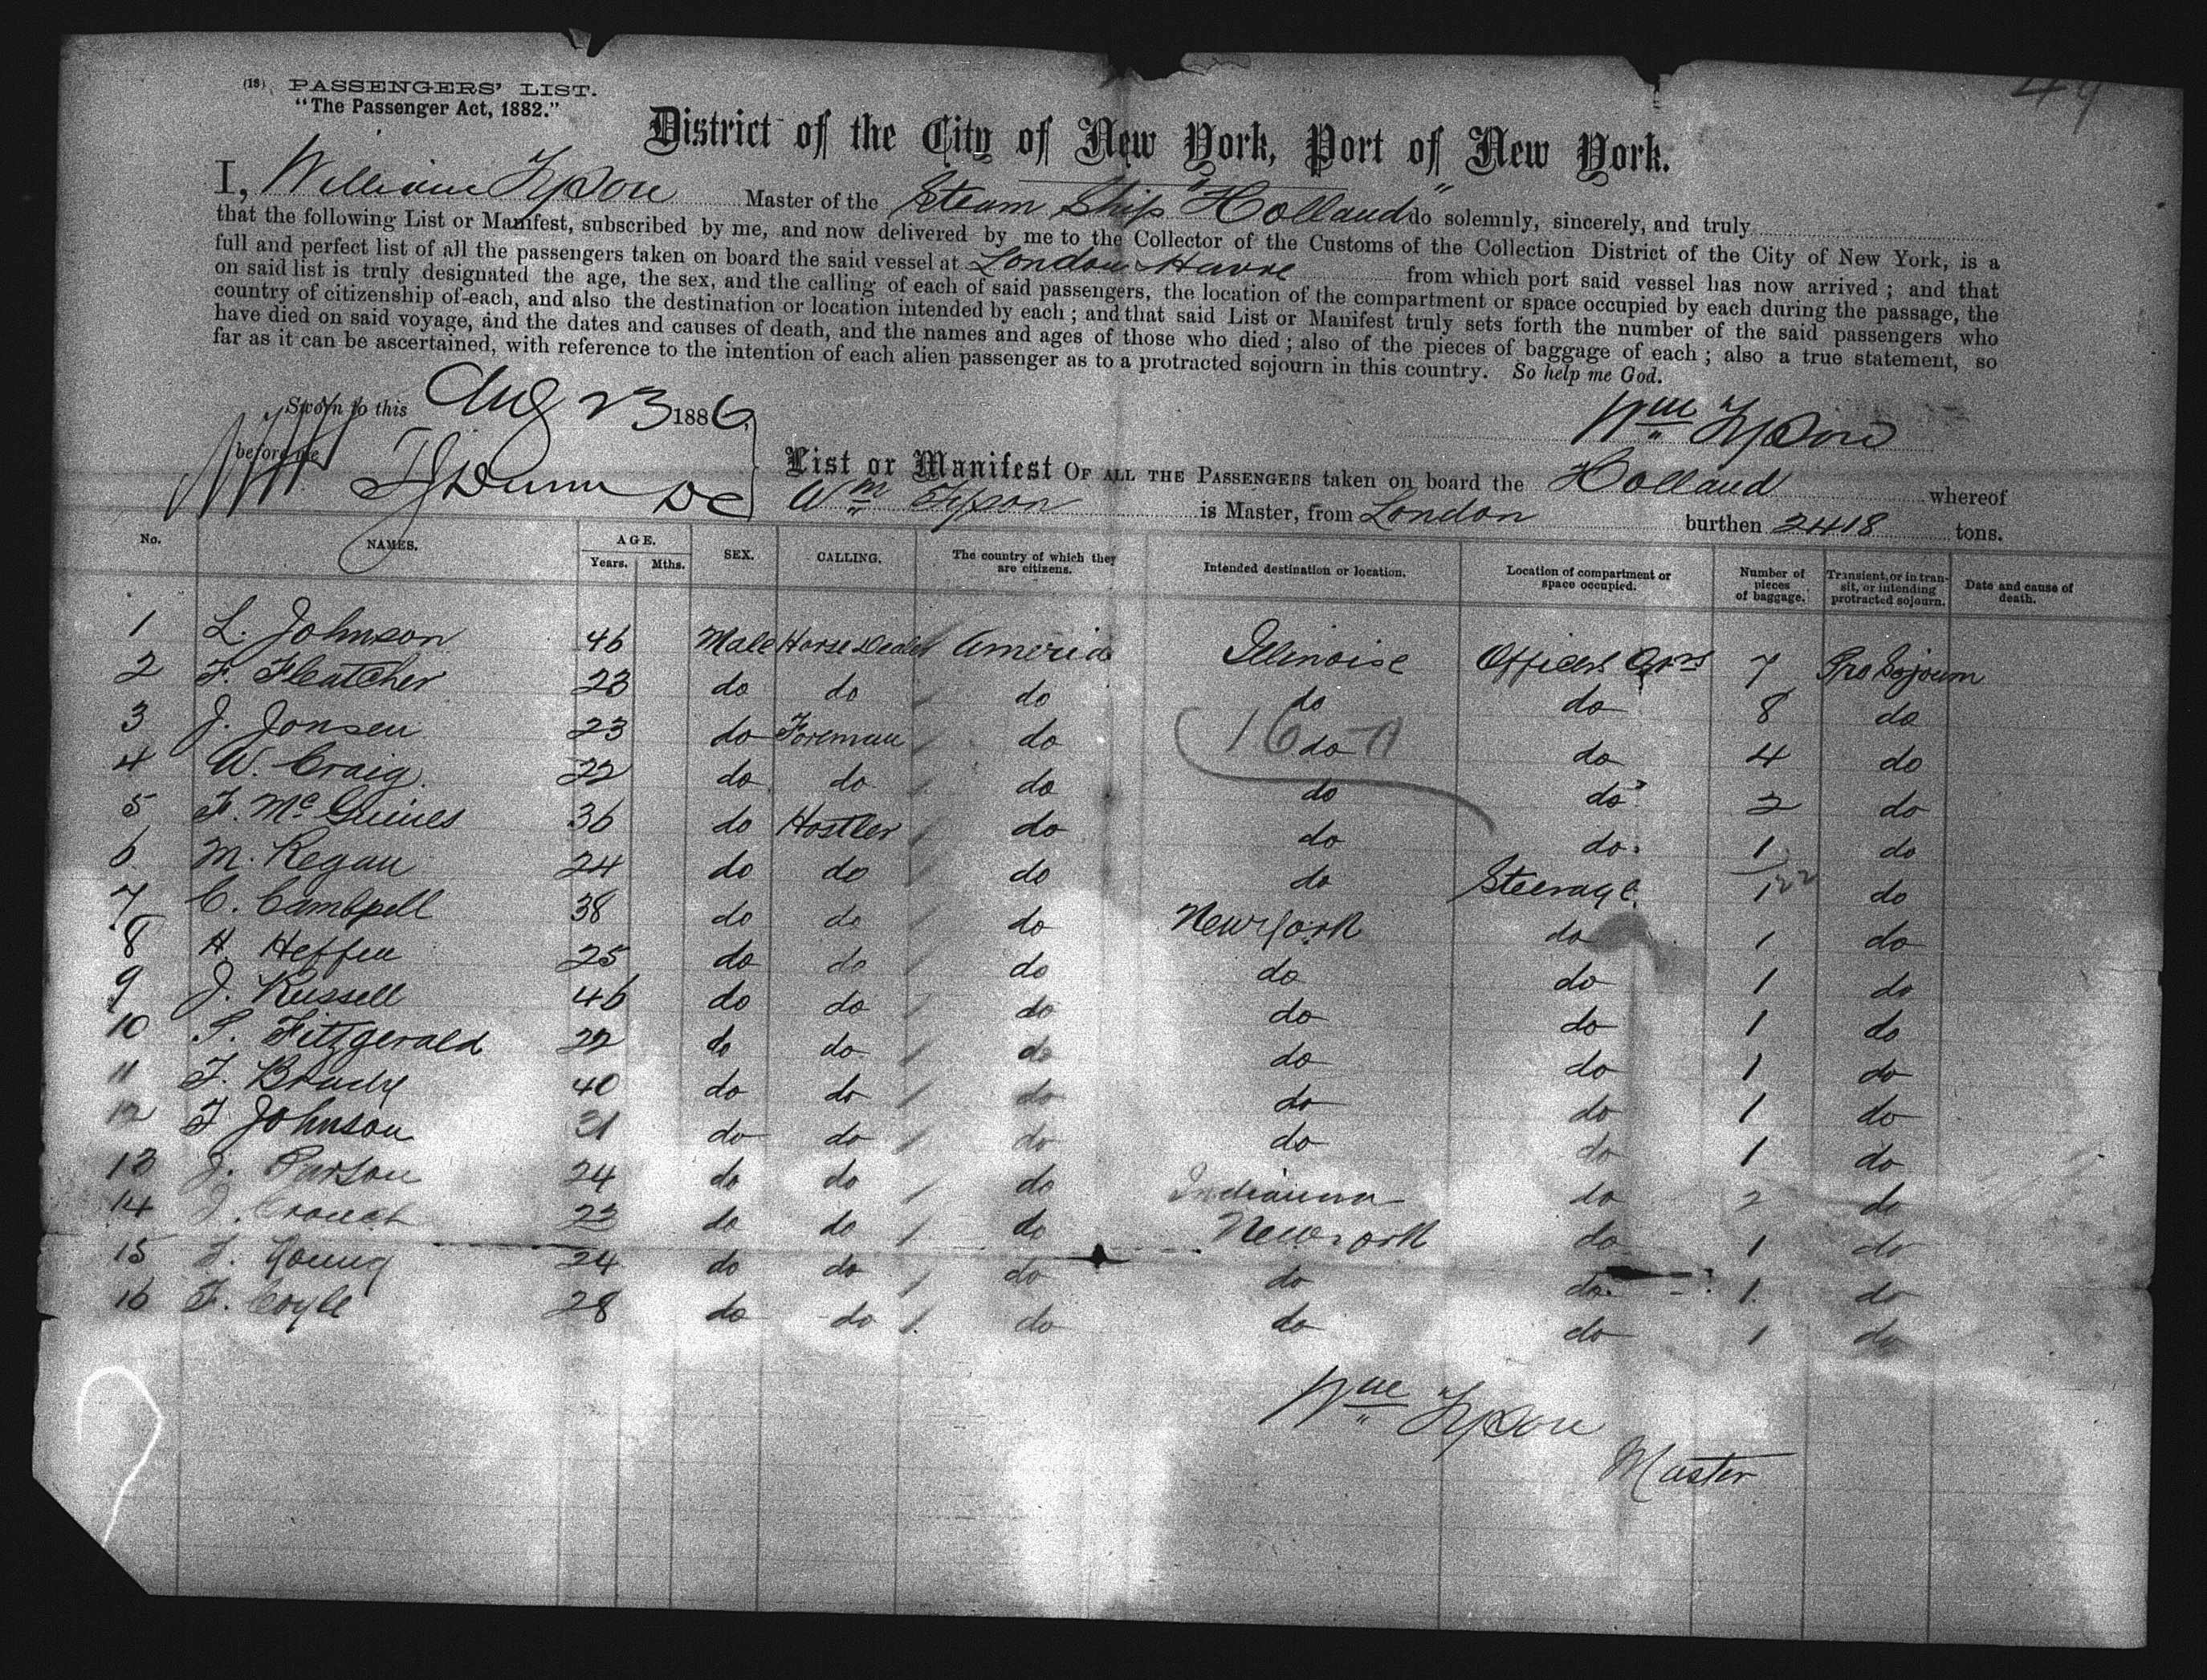 49
(18) PASSENGERS' LIST.
"The Passenger Act, 1882."
District of the City of New York, Port of New York.
I, William Tyson Master of the Steam Ship "Holland" do solemnly, sincerely, and truly
that the following List or Manifest, subscribed by me, and now delivered by me to the Collector of the Customs of the Collection District of the City of New York, is a
full and perfect list of all the passengers taken on board the said vessel at London Havre from which port said vessel has now arrived; and that
on said list is truly designated the age, the sex, and the calling of each of said passengers, the location of the compartment or space occupied by each during the passage, the
country of citizenship of each, and also the destination or location intended by each; and that said List or Manifest truly sets forth the number of the said passengers who
have died on said voyage, and the dates and causes of death, and the names and ages of those who died; also of the pieces of baggage of each; also a true statement, so
far as it can be ascertained, with reference to the intention of each alien passenger as to a protracted sojourn in this country. So help me God.
Sworn to this Aug 23 1886
Wm Tyson
before me
List or Manifest OF ALL THE PASSENGERS taken on board the Holland whereof
Wm Tyson is Master, from London burthen 2418 tons.
No. NAMES. AGE. Years. Mths. SEX. CALLING. The country of which they are citizens. Intended destination or location. Location of compartment or space occupied. Number of pieces of baggage. Transient, or in transit, or intending protracted sojourn. Date and cause of death.
1 L. Johnson 46 Male Horse Dealer America Illinoise Officers Qrs 7 Pro Sojourn
2 F. Fleatcher 23 do do do do do 8 do
3 J. Jonsen 23 do Foreman do do do 4 do
4 W. Craig 22 do do do do do 2 do
5 F. Mc Guines 36 do Hostler do do do 1 do
6 M. Regan 24 do do do do Steerage 1 do
7 C. Cambpell 38 do do do New York do 1 do
8 H. Heffen 25 do do do do do 1 do
9 J. Russell 46 do do do do do 1 do
10 S. Fitzgerald 22 do do do do do 1 do
11 F. Brady 40 do do do do do 1 do
12 F Johnson 31 do do do do do 1 do
13 J. Parson 24 do do do Indianna do 2 do
14 J. Crouch 23 do do do New York do 1 do
15 F. Young 24 do do do do do 1 do
16 F. Coyle 28 do do do do do 1 do
22
Wm Tyson
Master